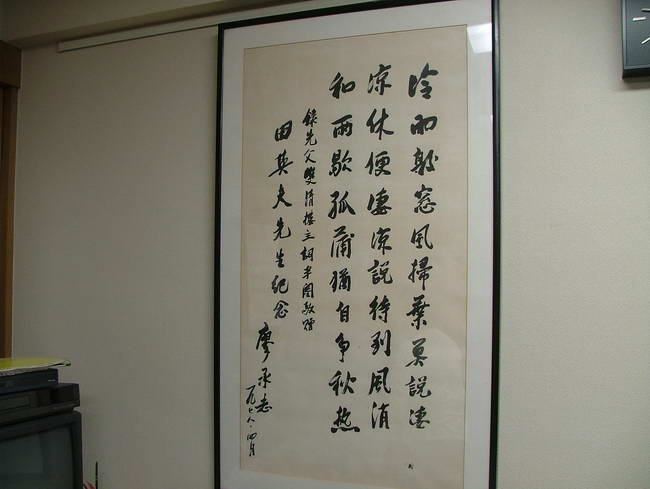 冷雨敲窓風掃葉莫說淒
涼休便淒涼說待到風消
和雨歇孤蒲猶自爭秋熱
錄先父雙清樓主詞半闋敬贈
田英夫先生紀念
廖承志
一九七八.四月